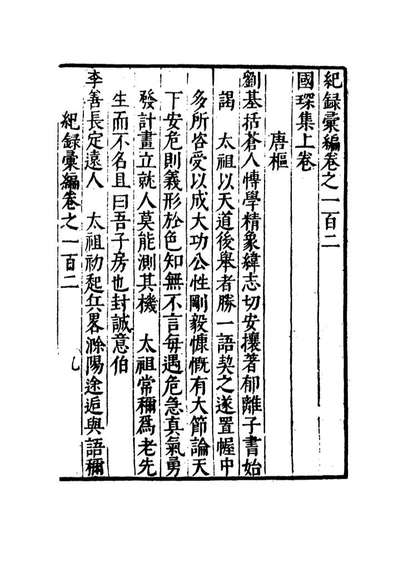 紀録彙編卷之一百二
國琛集上卷
唐樞
劉基括蒼人博學精象緯志切安攘著郁離子書始
謁 太祖以天道後舉者勝一語契之遂置幄中
多所咨受以成大功公性剛毅慷慨有大節論天
下安危則義形於色知無不言每遇危急真氣勇
發計畫立就人莫能測其機 太祖常穪爲老先
生而不名且曰吾子房也封誠意伯
李善長定遠人 太祖初起兵畧滁陽途逅與語穪
紀録彙編卷之一百二